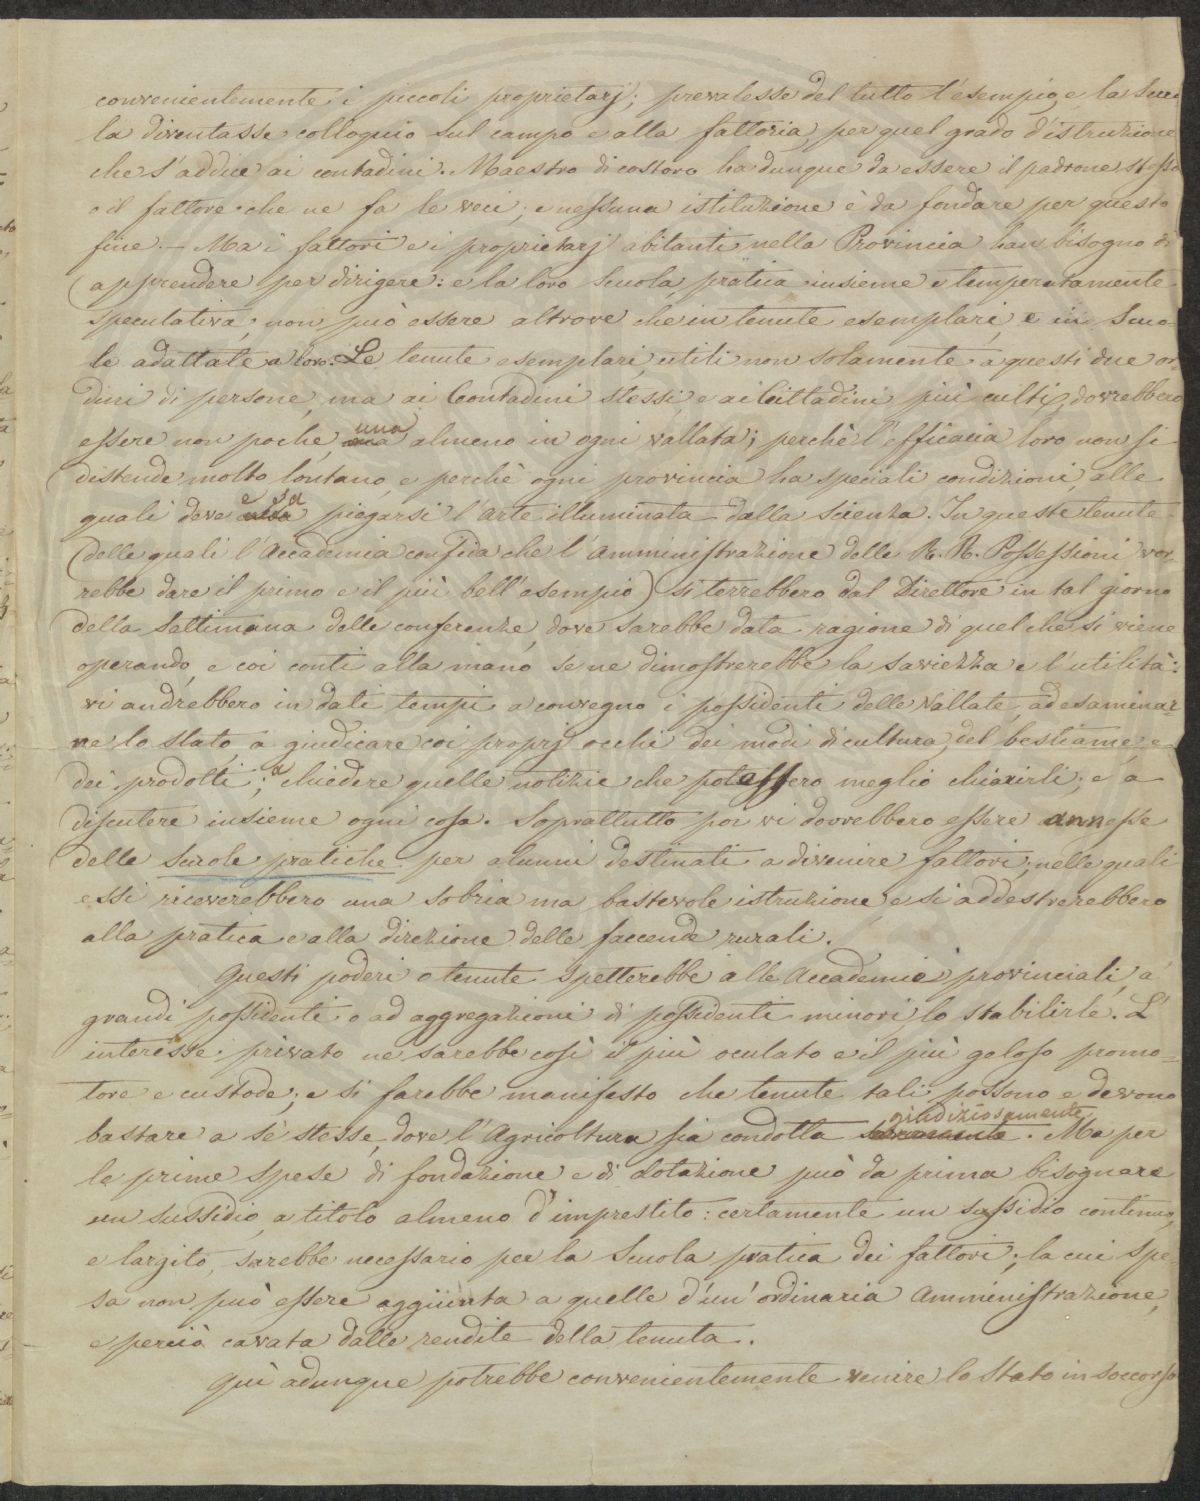 convenientemente i piccoli proprietarj; prevalesse del tutto l'esempio, e la Scuo
la diventasse colloquio sul campo e alla fattoria, per quel grado d'istruzione
che s'addice ai contadini. Maestro di costoro ha dunque da essere il padrone stesso
o il fattore che ne fa le veci; e nessuna istituzione è da fondare per questo
fine. — Ma i fattori e i proprietarj abitanti nella Provincia han bisogno di
apprendere per dirigere: e la loro Scuola, pratica insieme e temperatamente
speculativa, non può essere altrove che in tenute esemplari, e in Scuo-
le adattate a loro. Le tenute esemplari, utili non solamente a questi due or-
dini di persone, ma ai Contadini stessi, e ai Cittadini più culti, dovrebbero
essere non poche, una almeno in ogni vallata; perchè l'efficacia loro non si
distende molto lontano, e perchè ogni provincia ha speciali condizioni, alle
quali deve essa piegarsi l'arte illuminata dalla scienza. In queste tenute
(delle quali l'Accademia confida che l'Amministrazione delle R. R. Possessioni vor-
rebbe dare il primo e il più bell'esempio) si terrebbero dal Direttore in tal giorno
della Settimana delle conferenze, dove sarebbe data ragione di quel che si viene
operando, e coi conti alla mano se ne dimostrerebbe la saviezza e l'utilità:
vi andrebbero in dati tempi a convegno i possidenti delle Vallate, ad esaminar-
ne lo stato, a giudicare coi proprj occhi dei modi di cultura, del bestiame e
dei prodotti; a chiedere quelle notizie che potessero meglio chiarirli; e a
discutere insieme ogni cosa. Soprattutto poi vi dovrebbero essere annesse
delle scuole pratiche per alunni destinati a divenire fattori; nelle quali
essi riceverebbero una sobria ma bastevole istruzione, e si addestrerebbero
alla pratica e alla direzione delle faccende rurali.
Questi poderi o tenute spetterebbe alle Accademie provinciali, a
grandi possidenti o ad aggregazioni di possidenti minori, lo stabilirle. L'
interesse privato ne sarebbe così il più oculato e il più geloso promo-
tore e custode; e si farebbe manifesto che tenute tali possono e devono
bastare a sè stesse, dove l'Agricoltura sia condotta giudiziosamente. Ma per
le prime spese di fondazione e di dotazione può da prima bisognare
un sussidio, a titolo almeno d'imprestito: certamente un sussidio continuo,
e largito, sarebbe necessario per la Scuola pratica dei fattori; la cui spe-
sa non può essere aggiunta a quelle d'un'ordinaria Amministrazione,
e perciò cavata dalle rendite della tenuta.
Quì adunque potrebbe convenientemente venire lo Stato in soccorso